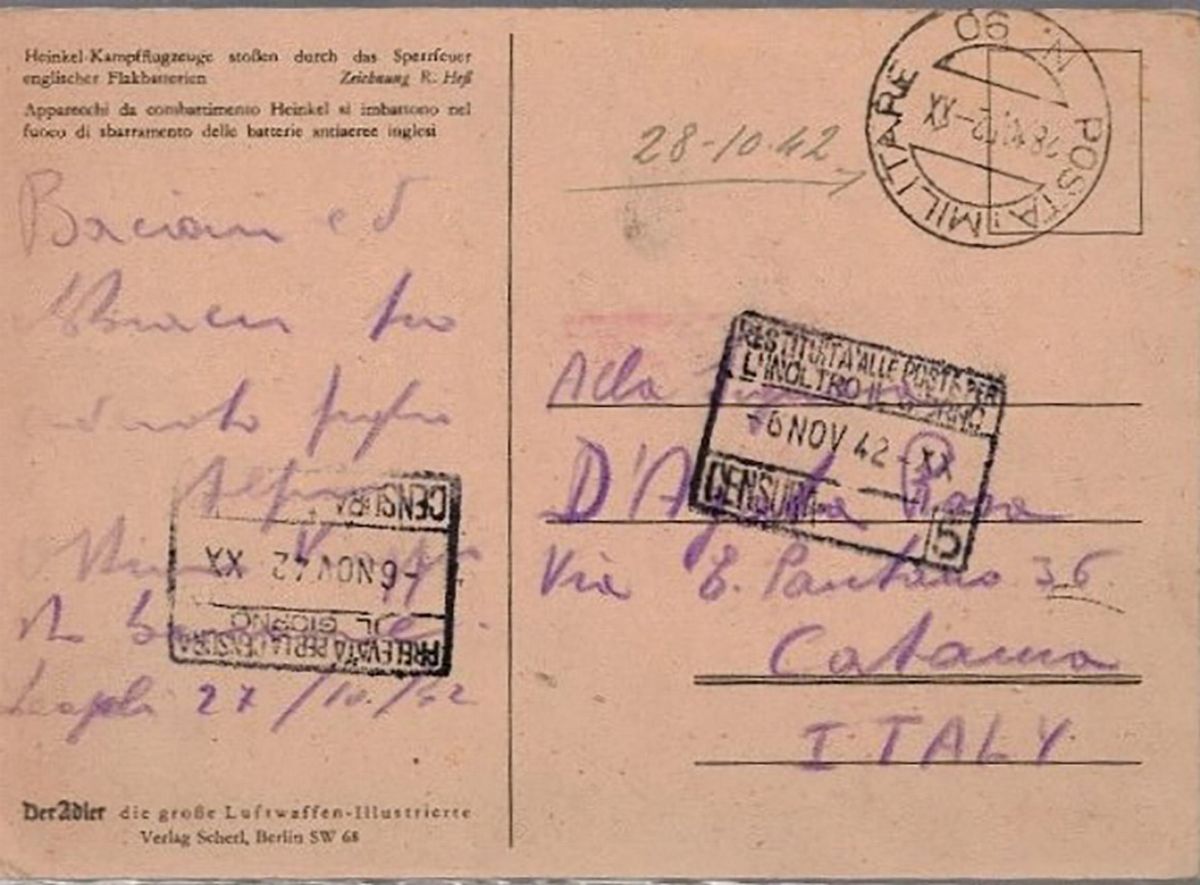 Heinkel-Kampfflugzeuge stoßen durch das Sperrfeuer
englischer Flakbatterien Zeichnung R. Heß
Apparecchi da combattimento Heinkel si imbattono nel
fuoco di sbarramento delle batterie antiaeree inglesi
Bacioni ed
tuo
figlio
27/10/42
CENSURA
-6 NOV 42 XX
IL GIORNO
PRELEVATA PER LA CENSURA
Der Adler die große Luftwaffen-Illustrierte
Verlag Scherl, Berlin SW 68
POSTA MILITARE N. 90
28-10-42
RESTITUITA ALLE POSTE PER
L'INOLTRO IL GIORNO
-6 NOV 42-XX
CENSURA 5
Alla
D'Agata Rosa
Via E. Pantano 36
Catania
ITALY